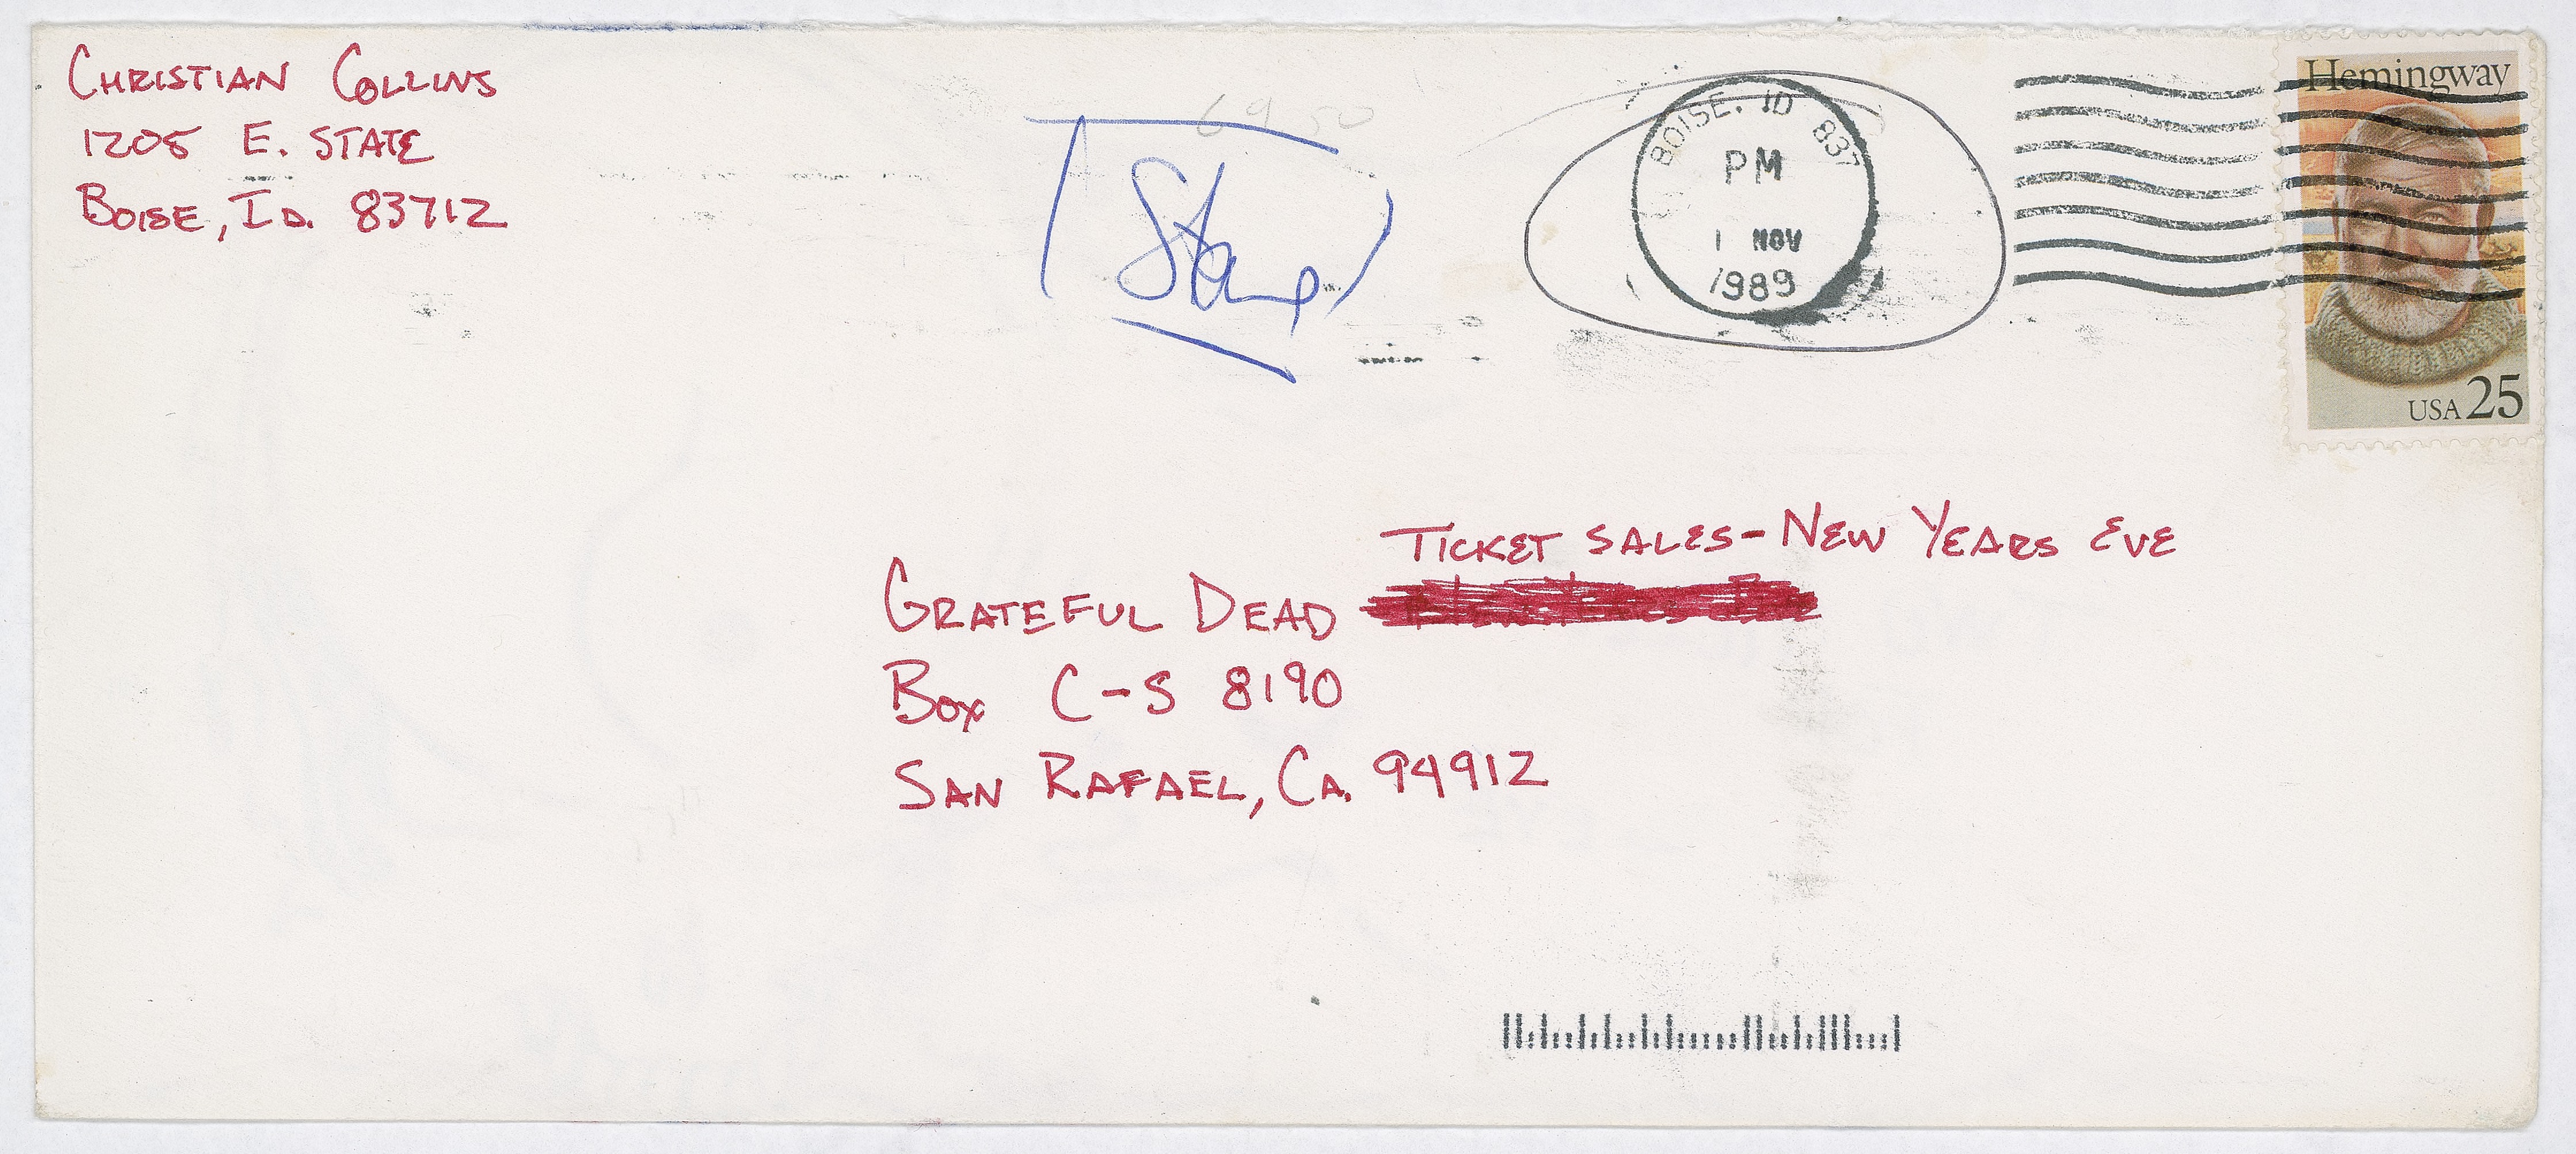 CHRISTIAN COLLINS
1205 E. STATE
BOISE, ID. 83712
69 50
Stamp
BOISE, ID 837
PM
1 NOV
1989
Hemingway
USA 25
TICKET SALES-NEW YEARS EVE
GRATEFUL DEAD
BOX C-S 8190
SAN RAFAEL, CA. 94912